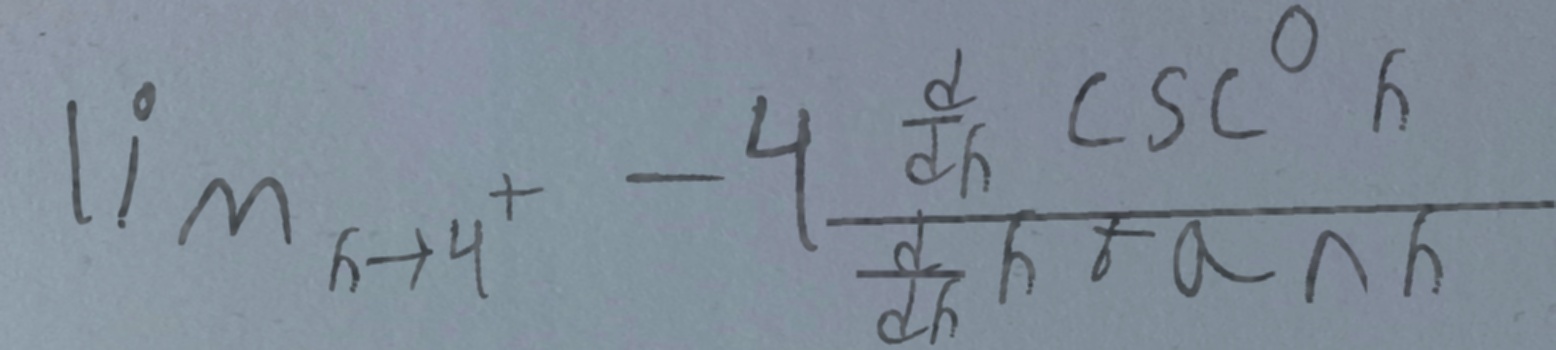 \lim_{h \to 4^+} -4 \frac{\frac{d}{dh} \csc^0 h}{\frac{d}{dh} h \tan h}